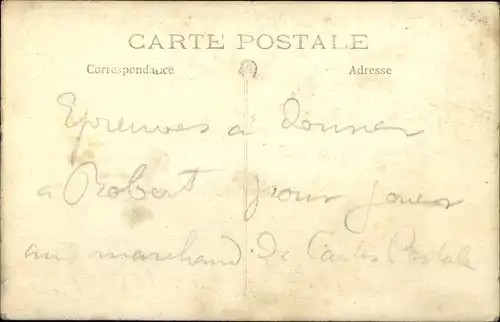 CARTE POSTALE
Correspondance
Adresse
Epreuves à donner
à Robert pour jouer
au marchand De Cartes Postale